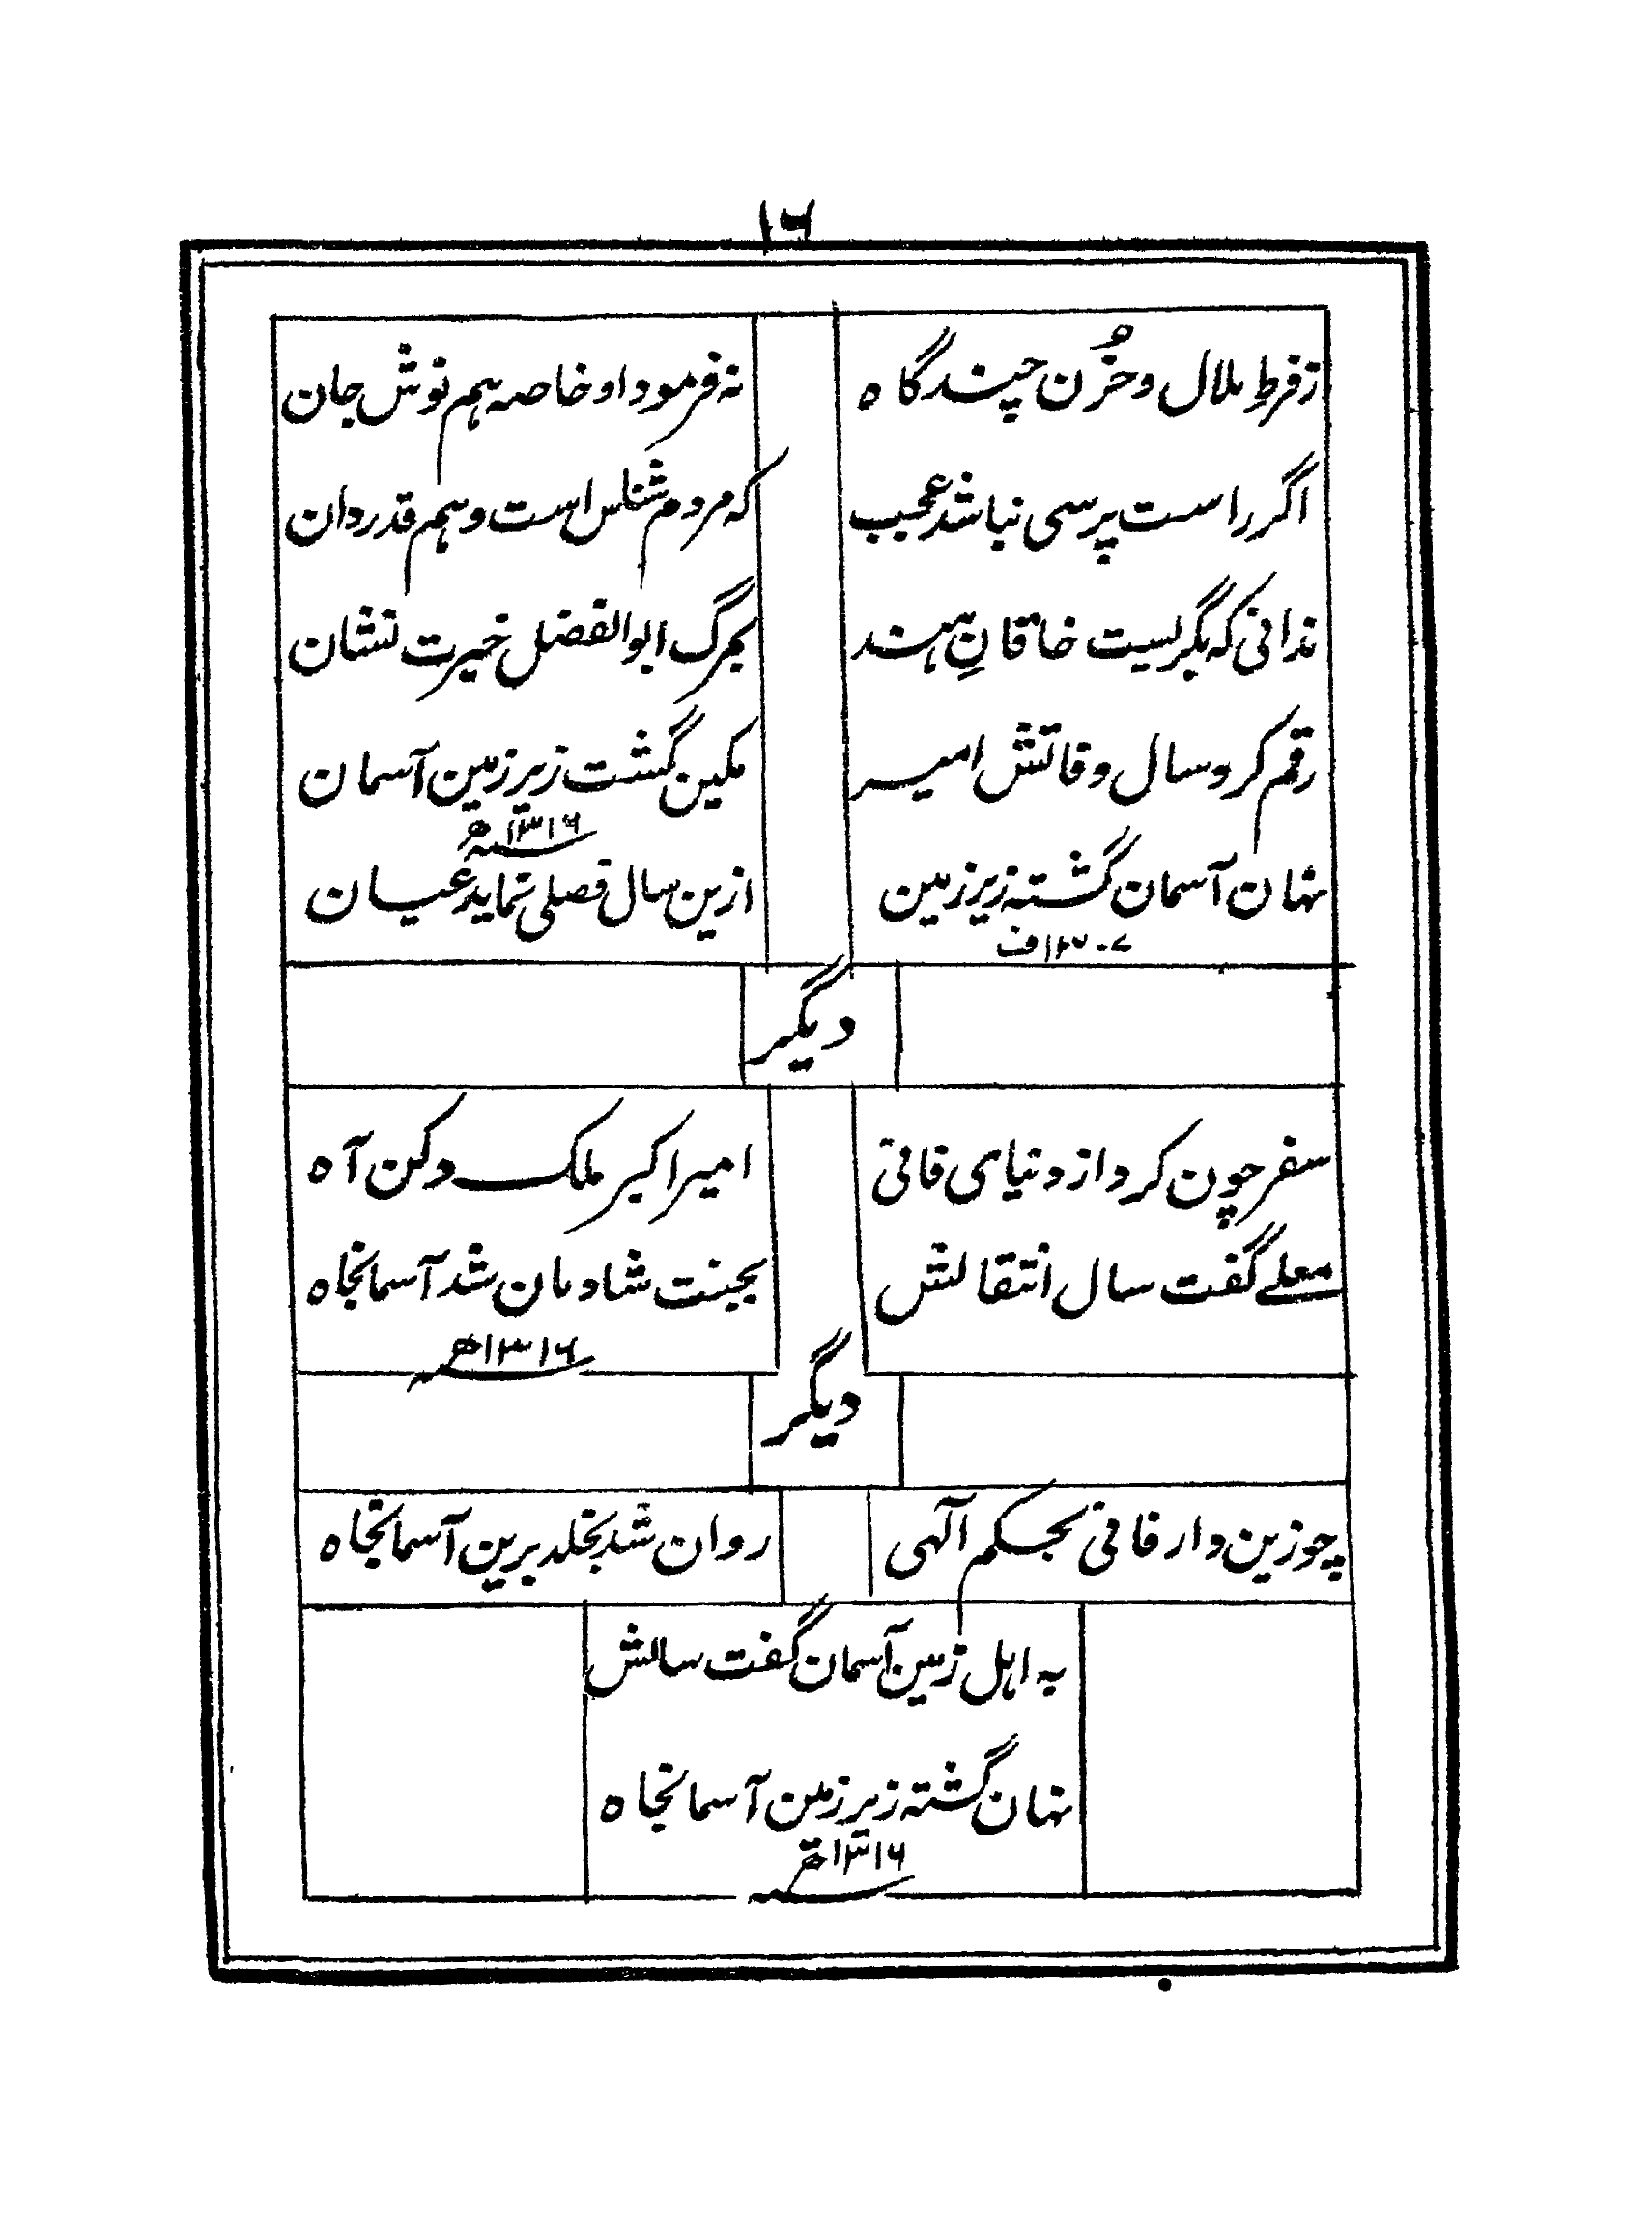 ١٦
زفرطِ ملال و حُزن چند گاه
نہ فرمود او خاصہ ہم نوش جان
اگر راست پرسی نباشد عجب
کہ مردم شناس است و ہم قدردان
ندانی کہ بگریست خاقانِ ہند
بمرگ ابوالفضل خیرت نشان
رقم کرد سال وفاتش امیر
مکین گشت زیر زمین آسمان
١٣١٦ھ
نہان آسمان گشتہ زیر زمین
ازین سال فصلی نماید عیان
١٣٠٧ف
دیگر
سفر چون کرد از دنیای فانی
امیر اکبر ملک دکن آہ
معلے گفت سال انتقالش
بجنت شادمان شد آسمانجاہ
١٣١٦ھ
دیگر
چو زین دار فانی بحکم آلہی
روان شد بخلد برین آسمانجاہ
بہ اہل زمین آسمان گفت سالش
نہان گشتہ زیر زمین آسمانجاہ
١٣١٦ھ